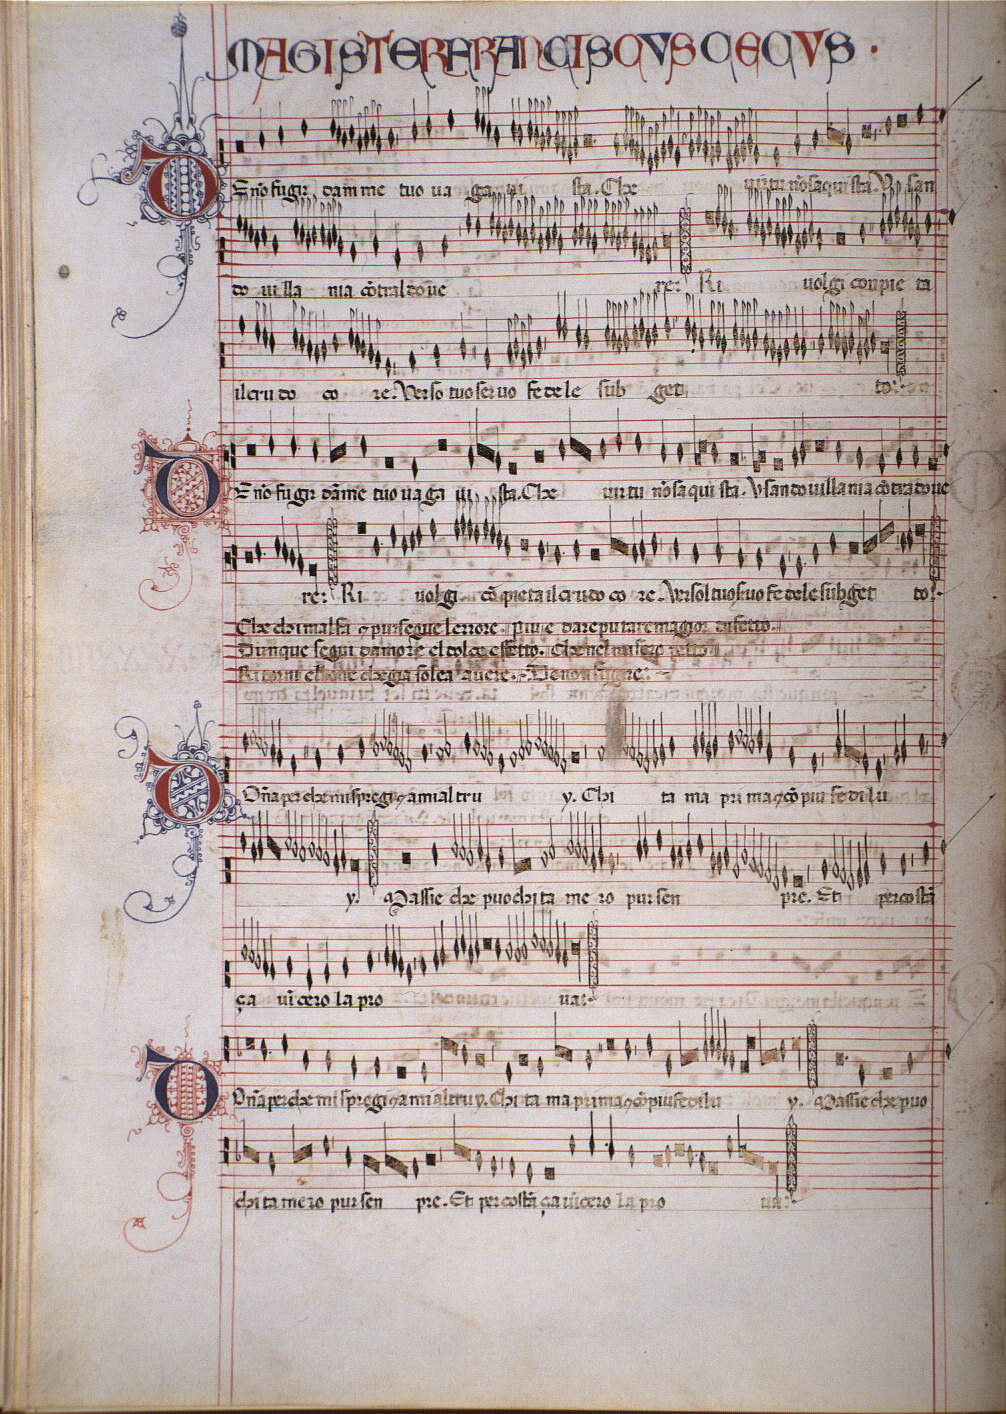 MAGISTER FRANCISCVS CECVS
DE nō fugir dam me tuo va ga vi sta. Che virtu nō saqui sta. Vsan
do villa nia cōtral doue re: Ri volgi con pie ta
il cru do co re: Verso tuo seruo fe de le sub get to:
DE nō fu gir dāme tuo va ga vi sta. Che virtu nō sa qui sta. Vsan do villa nia cōtra doue
re: Ri uol gi cō pie ta il cru do co re. Verso l tuo seruo fe de le sub get to:
Che chi mal fa & pur segue lerrore. piu e da reputare magior difetto.
Dunque segui damore el dolce effetto. Che nel
Ritorni essione che gia solea auere. De non fugire.
DOña per che mi spregi & a mi altru y. Chi ta ma pri ma & cō piu fe di lu
y. Passie che puo chi ta me ro pur sen pre. Et per costā
ça vicero la pro ua:
DOña perche mi spregi & a mi altru y. Chi ta ma prima & cō piu fe di lu y. Passie che puo
chi ta me ro pur sen pre. Et per costā ça vicero la pro ua: